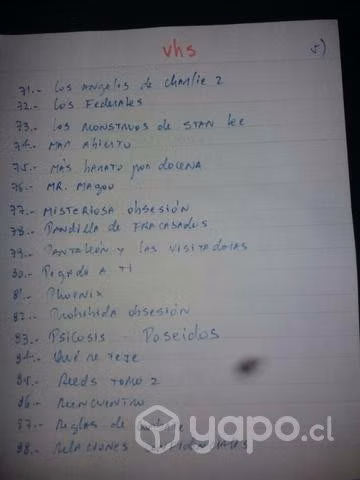 vhs
5)
71.- Los Angeles de Charlie 2
72.- Los Federales
73.- Los monstruos de STAN Lee
74.- MAR Abierto
75.- MÁS barato por docena
76.- MR. Magou
77.- Misteriosa obsesión
78.- Pandilla de FRACASADOS
79.- Pantaleón y las visitadoras
80.- Pegado A Ti
81.- Phoenix
82.- Prohibida obsesión
83.- Psicosis - Poseidos
84.- Qué me
85.- Reeds tomo 2
86.- Reencuentro
87.- Reglas de
88.- Relaciones
yapo.cl